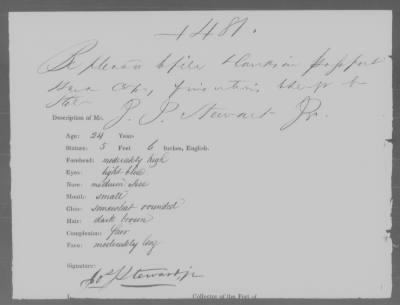 1481.
Be pleased to
Description of Mr. J. P. Stewart Jr.
Age: 24 Years
Stature: 5 Feet 6 Inches, English.
Forehead: moderately high
Eyes: light blue
Nose: medium size
Mouth: small
Chin: somewhat rounded
Hair: dark brown
Complexion: fair
Face: moderately long
Signature:
Jos P Stewart, jr
Collector of the Port of